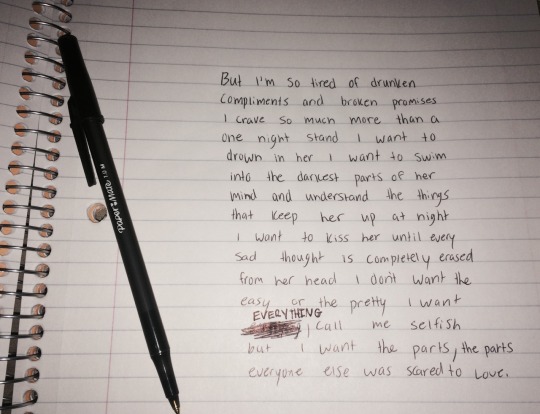 But I'm so tired of drunken
compliments and broken promises
I crave so much more than a
one night stand I want to
drown in her I want to swim
into the darkest parts of her
mind and understand the things
that keep her up at night
I want to kiss her until every
sad thought is completely erased
from her head I don't want the
easy or the pretty I want
EVERYTHING
, call me selfish
but I want the parts, the parts
everyone else was scared to love.
paper:mate